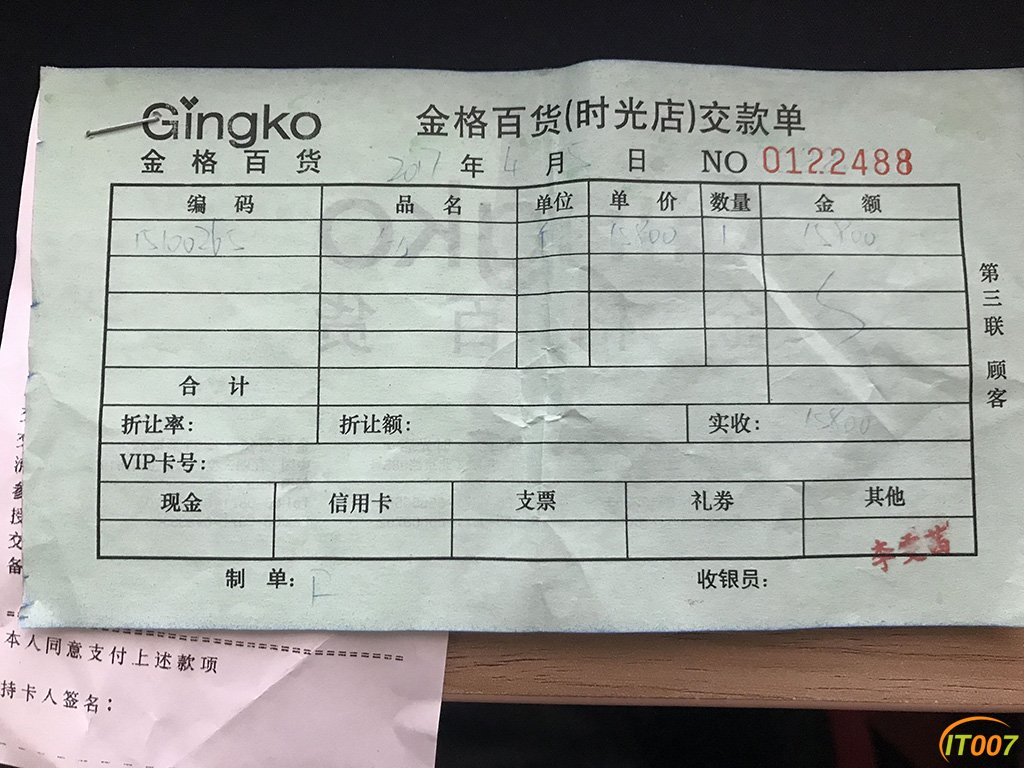 Gingko
金格百货
金格百货(时光店)交款单
2017年4月5日 NO 0122488
编码 品名 单位 单价 数量 金额
15100265 15800 1 15800
合计
折让率: 折让额: 实收: 15800
VIP卡号:
现金 信用卡 支票 礼券 其他
制单: 收银员:
第三联 顾客
交
流
参
授
交
备
本人同意支付上述款项
持卡人签名:
IT007